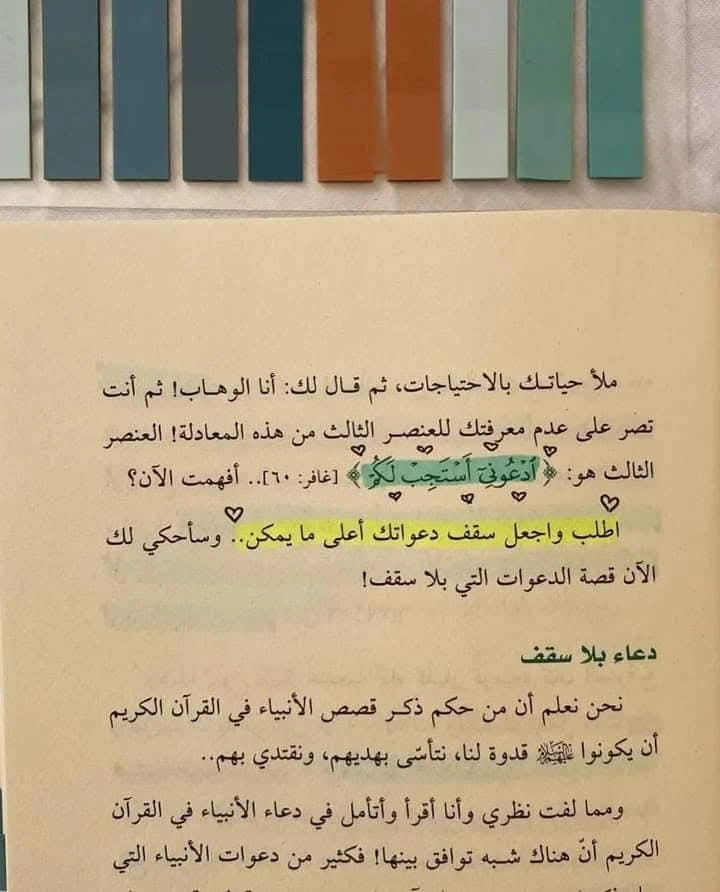 ملأ حياتك بالاحتياجات، ثم قال لك: أنا الوهاب! ثم أنت
تصر على عدم معرفتك للعنصر الثالث من هذه المعادلة! العنصر
الثالث هو: ﴿ٱدۡعُونِيٓ أَسۡتَجِبۡ لَكُمۡ﴾ [غافر: ٦٠].. أفهمت الآن؟
اطلب واجعل سقف دعواتك أعلى ما يمكن.. وسأحكي لك
الآن قصة الدعوات التي بلا سقف!
دعاء بلا سقف
نحن نعلم أن من حكم ذكر قصص الأنبياء في القرآن الكريم
أن يكونوا عليهم السلام قدوة لنا، نتأسّى بهديهم، ونقتدي بهم..
ومما لفت نظري وأنا أقرأ وأتأمل في دعاء الأنبياء في القرآن
الكريم أنّ هناك شبه توافق بينها! فكثير من دعوات الأنبياء التي